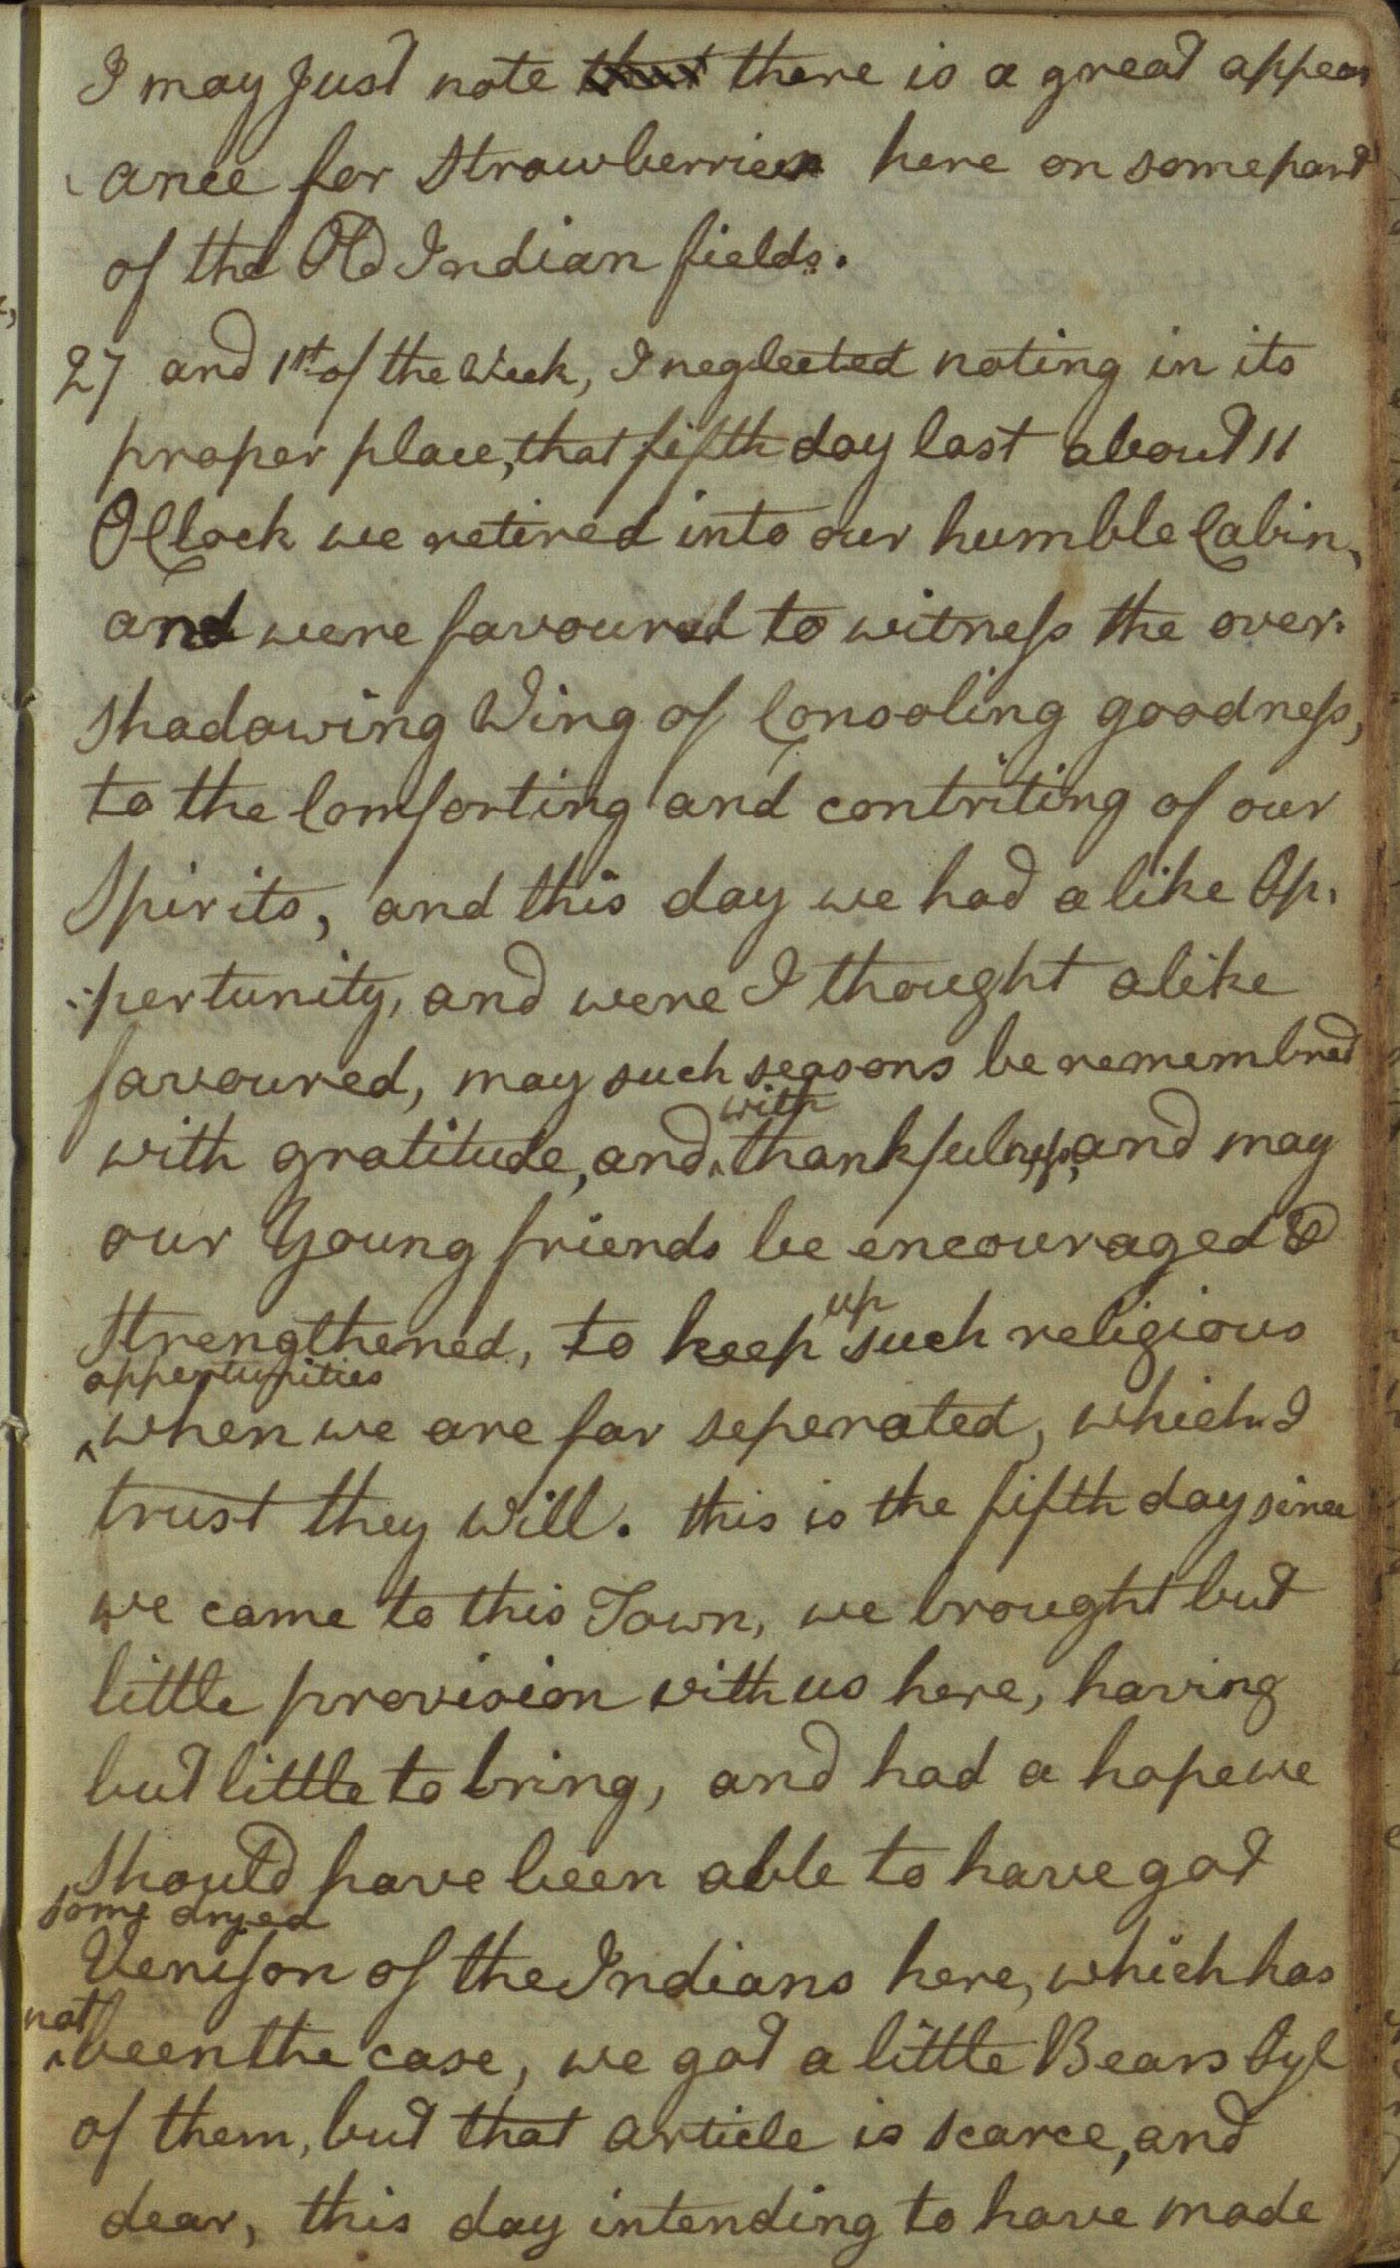 I may Just note that there is a great appear
ance for Strawberries here on some part
of the Old Indian fields.
27 and 1st of the Week, I neglected noting in its
proper place, that fifth day last about 11
OClock we retired into our humble Cabin,
and were favoured to witness the over-
shadowing Wing of Consoling goodness,
to the Comforting and contriting of our
Spirits, and this day we had a like Op-
-pertunity, and were I thought alike
favoured, may such seasons be remembred
with
with gratitude, and ^ thankfulness, and may
our Young friends be encouraged &
up
Strengthened, to keep such religious
oppertunities
^ when we are far seperated, which I
trust they will. this is the fifth day since
we came to this Town, we brought but
little provision with us here, having
but little to bring, and had a hope we
should have been able to have got
some dryed
Venison of the Indians here, which has
not
^ been the case, we got a little Bears Oyl
of them, but that article is scarce, and
dear, this day intending to have made